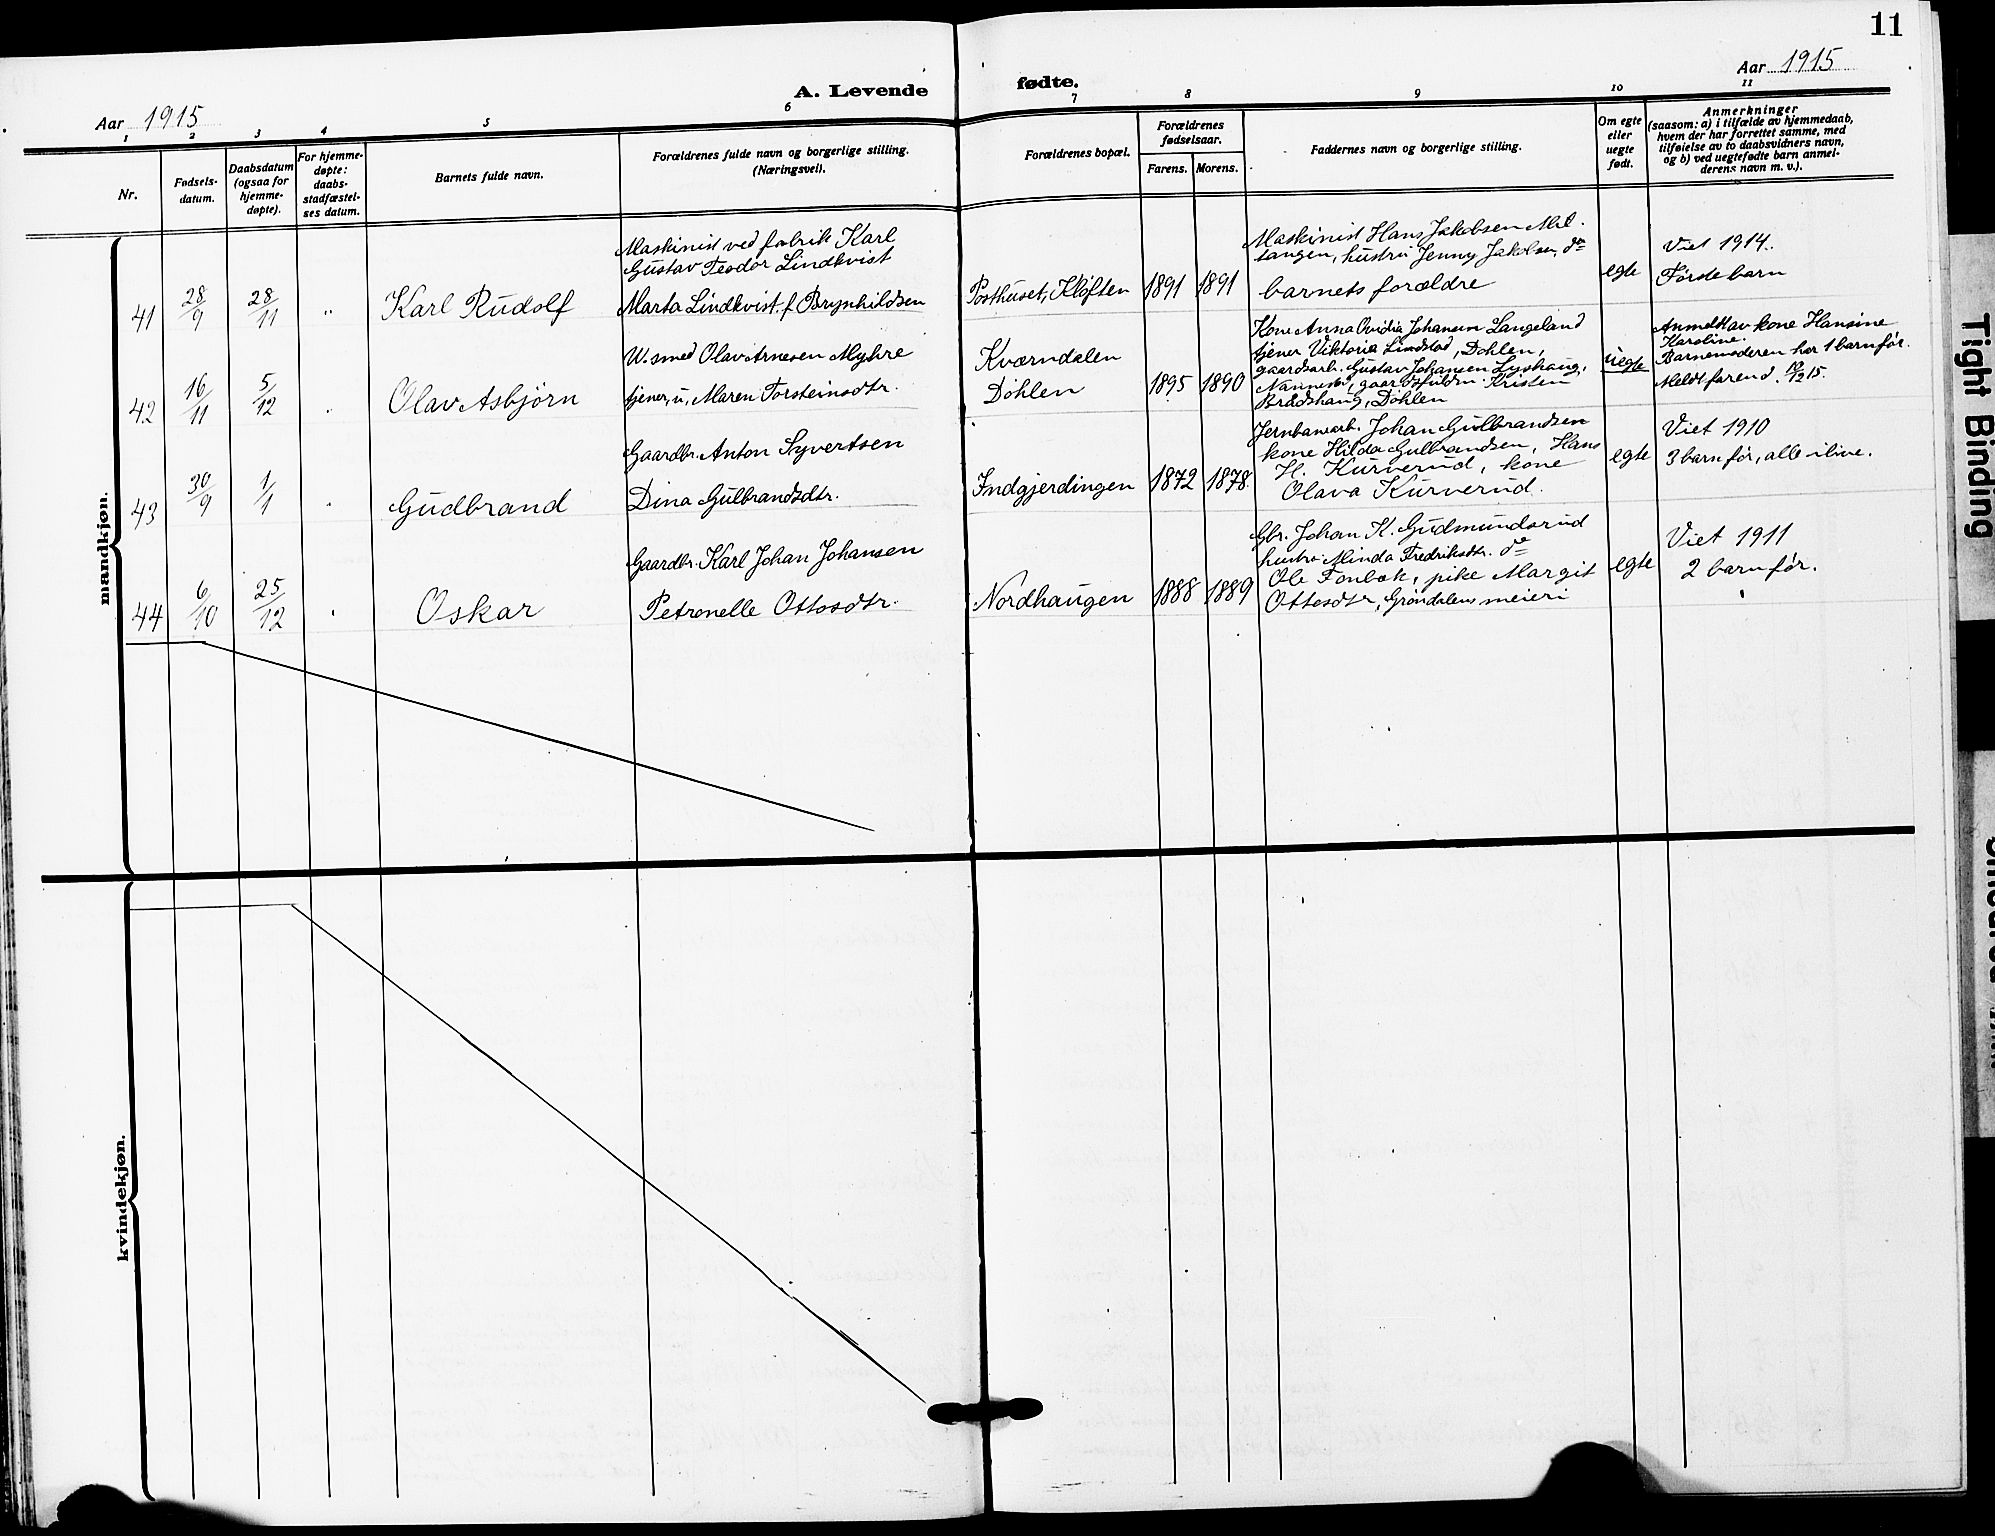 11
Aar 1915
A. Levende
fødte.
Aar 1915
1
2
3
4
5
6
7
8
9
10
11
Nr.
Fødsels-
datum.
Daabsdatum
(ogsaa for
hjemme-
døpte).
For hjemme-
døpte:
daabs-
stadfæstel-
ses datum.
Barnets fulde navn.
Forældrenes fulde navn og borgerlige stilling.
(Næringsvei).
Forældrenes bopæl.
Forældrenes
fødselsaar.
Farens. Morens.
Faddernes navn og borgerlige stilling.
Om egte
eller
uegte
født.
Anmerkninger
(saasom: a) i tilfælde av hjemmedaab,
hvem der har forrettet samme, med
tilføielse av to daabsvidners navn,
og b) ved uegtefødte barn anmel-
derens navn m. v.).
mandkjøn.
41
28/9
28/11
"
Karl Rudolf
Maskinist ved fabrik Karl
Gustav Teodor Lindkvist
Marta Lindkvist f. Brynhildsen
Posthuset, Kløften
1891
1891
Maskinist Hans Jakobsen Mel-
tangen, hustru Jenny Jakobsen, do
barnets forældre
egte
Viet 1914.
Første barn
42
16/11
5/12
"
Olav Asbjørn
U. smed Olav Arnesen Myhre
tjener, u, Maren Torsteinsdtr.
Kværndalen
Døhlen
1895
1890
Kone Anna Ovidia Johansen Langeland
tjener Viktoria Lindstad, Døhlen,
gaardsarb. Gustav Johansen Lyshaug,
Nannestad, gaardsfuldm. Kristen
Braadshaug, Døhlen
uegte
Anmeldt av kone Hansine
Karoline.
Barnemoderen har 1 barn før.
Meldt farend. 10/12 15.
43
30/9
1/1
"
Gudbrand
Gaardbr. Anton Syvertsen
Dina Gulbrandsdtr.
Indgjerdingen
1872
1878.
Jernbanearb. Johan Gulbrandsen
kone Hilda Gulbrandsen, Hans
H. Kurverud, kone
Olava Kurverud.
egte
Viet 1910
3 barn før, alle i live.
44
6/10
25/12
"
Oskar
Gaardbr. Karl Johan Johansen
Petronelle Ottosdtr.
Nordhaugen
1888
1889
Gbr. Johan K. Gudmundsrud
hustru Minda Fredriksdtr. do
Ole Fonbæk, pike Margit
Ottosdtr, Grøndalens meieri
egte
Viet 1911
2 barn før.
kvindekjøn.
Tight Binding